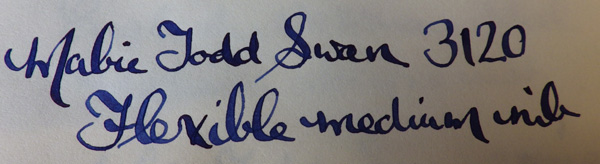 Mabie Todd Swan 3120
Flexible medium nib